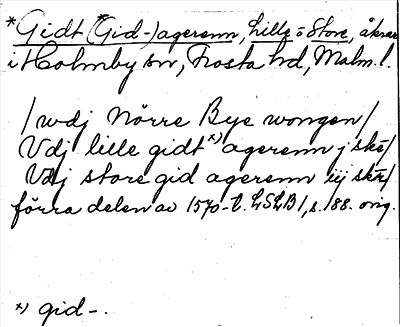 *Gidt (*Gid-) agerenn, Lille o Store, åkrar
i Holmby sn, Frosta hd, Malm. l.
/ wdj Nörre Bye wongen /
Vdj lille gidt x) agerenn j ske /
Vdj store gid agerenn iij ske /
förra delen av 1570-t. LSLB 1, s. 188. orig.
x) gid-.